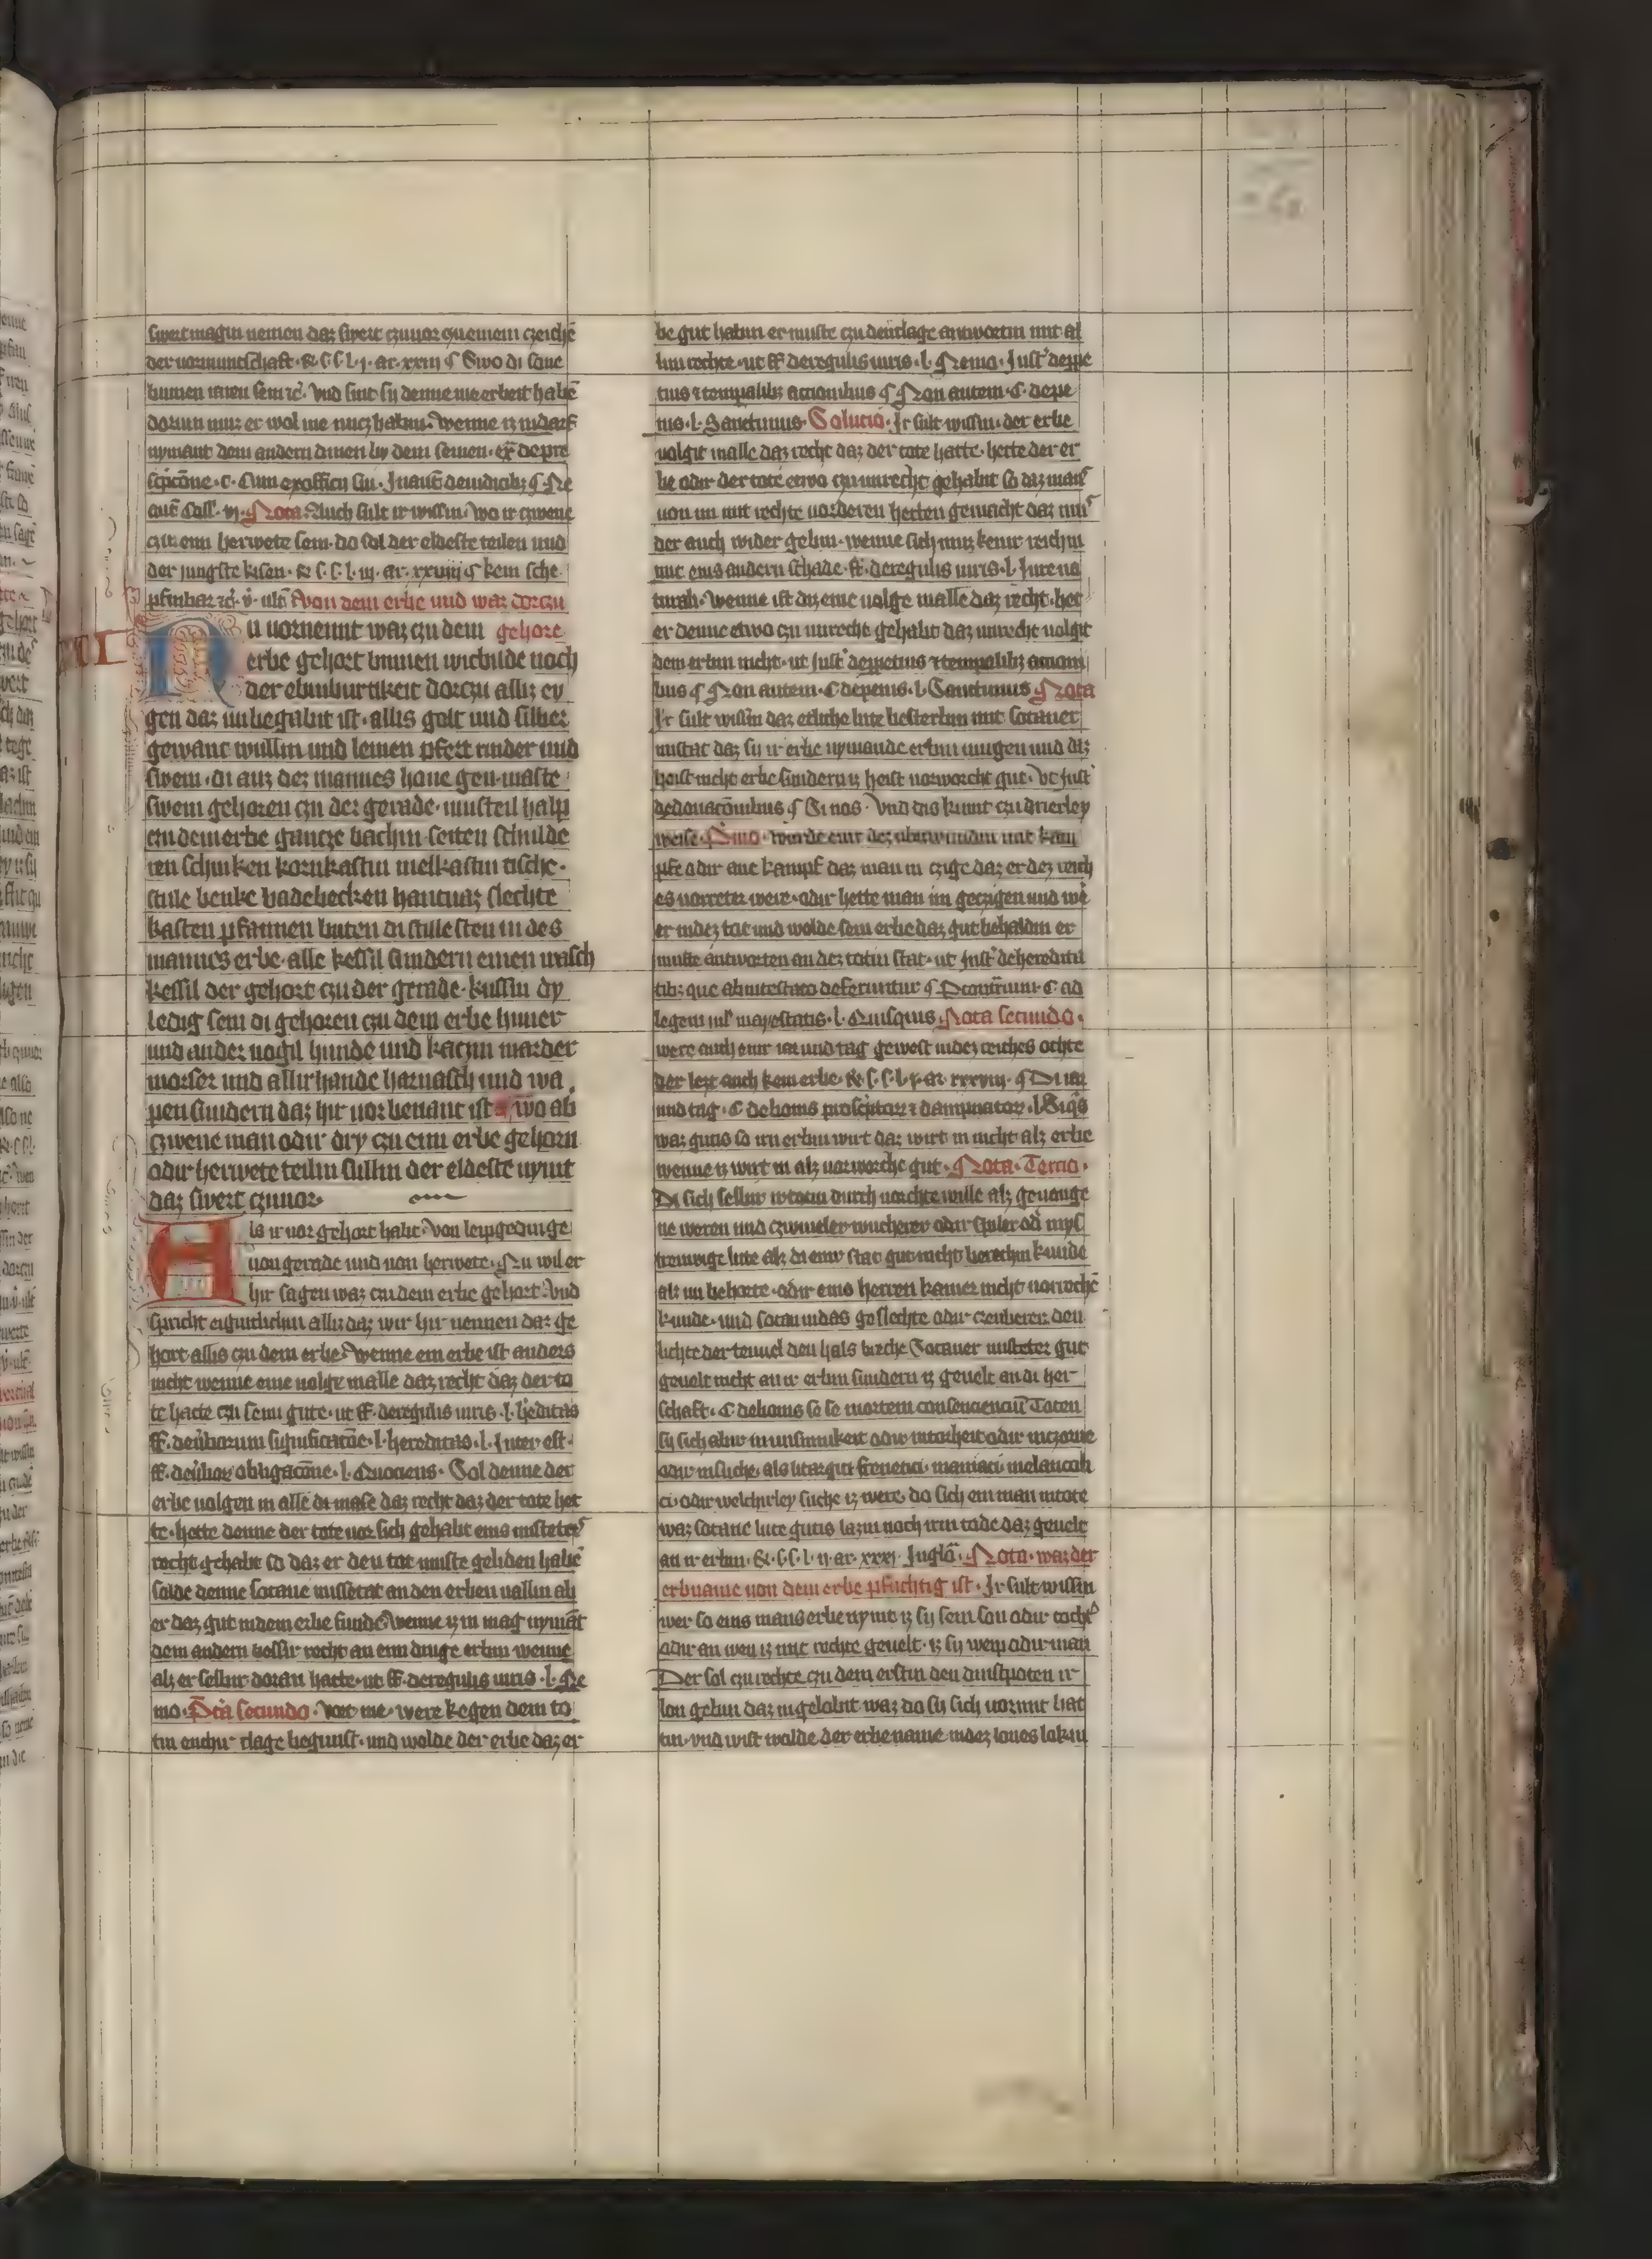 swertmagin nemen daz swert czuuor czu einem czeichē
der uormuntschaft · & S · S · l · j · ar · xxiij ¶ Swo di sone
binnen iaren sein ꝛc̄ · Vnd sint sy denne nie erbeit habē
dorum muz er wol nie nucz habin · Wenne iz indarf
nymant dem andern dinen by dem seinen · ex̄ de pre
scpcōne · c · Cum ex officij sui · Jn auc̄ de iudicibz ¶ Ne
auc̄ Coll · vj · Nota · Auch sult ir wissin · Wo ir czwene
czu enn herwete sein · do sol der eldeste teilen und
der jungste kisen · & S · S · l · iij · ar · xxviiij ¶ kein sche
pfinbar ꝛc̄ · v̄ · ult̄ Von dem erbe und waz dorczu
Nu uornemt waz czu dem gehore
XVI
erbe gehort binnen wicbilde noch
der ebinburtikeit dorczu alliz ey
gen daz unbegabit ist · allis golt und silber
gewant wullin und leinen pfert rinder und
swein · di auz dez mannes houe gen · maste
swein gehoren czu der gerade · musteil halp
czu dem erbe gancze bachin · seiten schulde
ren schinken kornkastin melkastin tische ·
stule benke badebecken hantuaz slechte
kasten pfannen buten di stille sten in des
mannes erbe · alle kessil sundern einen wasch
kessil der gehort czu der gerade · kussin dy
ledig sein di gehoren czu dem erbe huner
und ander uogil hunde und katzin marder
morser und allirhande harnasch und wa
pen sundern daz hir uor benant ist wo ab
czwene man odir dry czu eim erbe gehorn
odir herwete teilin sullin der eldeste nymt
daz swert czuuor
Als ir uor gehort habt · Von leipgedinge
uon gerade und uon herwete · Nu wil er
hir sagen waz czu dem erbe gehort · Vnd
spricht eigintlichin alliz daz wir hir nennen daz ge
hort allis czu dem erbe · Wenne ein erbe ist anders
nicht wenne eine uolge in alle daz recht daz der to
te hatte czu seim gute · ut ff · de regulis iuris · l · h̄editas
ff · de u̾borum significatōe · l · hereditas · l · Inter est ·
ff · de u̾bor obligacōne · l · Quociens · Sol denne der
erbe uolgen in alle di mase daz recht daz der tote het
te · hette denne der tote uor sich gehabt eins missetet̾
recht gehabt so daz er den tot muste geliden habē
solde denne sotane missetat an den erben uallin ab
er daz gut in dem erbe funde · Wenne iz in mag nymāt
dem andern bossir recht an enn dinge erbin wenne
alz er selbir doran hatte · ut ff · de regulis iuris · l · Ne
mo · Nota secundo · Vort me · were kegen dem to
tin enchir clage begunst · und wolde der erbe daz er
be gut habin er muste czu der clage antwortin mit al
lim rechte · ut ff de regulis iuris · l · Nemo · Just̾ de ppe
tuis ⁊ tempalibz actionibus ¶ Non autem · C · de pe
nis · l · Sancimus · Solucio · Jr sult wissin · der erbe
uolgit in alle daz recht daz der tote hatte · hette der er
be odir der tote etwo czu unrecht gehabit so daz man̾
uon im mit rechte uorderen hetten gemacht daz mus̾
der auch wider gebin · wenne sich muz keinr reichin
mit eins andern schade · ff · de regulis iuris · l · Jure na
turali · Wenne ist diz eine uolge in alle daz recht · het
er denne etwo czu unrecht gehabit daz unrecht uolgit
dem erbin nicht · ut Just̾ de ppetuis ⁊ tempalibz actioni
bus ¶ Non autem · C de penis · l · Sancimus Nota
Jr sult wissin daz etliche lute besterbin mit sotaner
mistat daz sy ir erbe nymande erbin mugen und diz
heist nicht erbe sundern iz heist uorworcht gut · Vt Just̾
de donacōnibus ¶ Si nos · Vnd dis kumt czu drierley
weise · Primo · Wurde einr dez ubirwundin mit kam
pfe odir ane kampf daz man in czige daz er dez reich
es uorreter were · odir hette man im geczigen und wē
er in dez tot und wolde sein erbe daz gut behaldin er
muste antworten an dez totin stat · ut Just̾ de hereditā
tibz que ab intestato deferuntur ¶ Per contrarium · C · ad
legem iul̾ mayestatis · l · Quisquis · Nota secundo ·
were auch einr iar und tag gewest in dez reiches ochte
der lezt auch kein erbe · & S · S · l · j · ar · xxxviij · ¶ Di iar
und tag · C de bonis proscptor ⁊ dampnator · l · Si qis
waz gutis so im erbin wirt daz wirt in nicht alz erbe
wenne iz wirt in alz uorworcht gut · Nota · Tercio ·
Di sich selbir totin durch uorchte wille alz geuange
ne weren und czwiueler wucherer odir spiler od̾ mys
trewige lute alz di einr stat gut nicht berechin kunde
alz im behorte · odir eins herren kamer nicht uorrechē
kunde · und sotan in daz geslechte odir czeuberer den
lichte der teuuel den hals briche Sotaner misteter gut
geuelt nicht an ir erbin sundern iz geuelt an di her
schaft · C de bonis eo se mortem consciencium Toten
sy sich abir in unsinnikeit odir in torheit odir in czorne
odir in suche · als litargici frenetici · maniaci · melancoli
ci · odir welchirley suche iz were · do sich ein man in tote
waz sotane lute gutis lazin noch irm tode daz geuelt
an ir erbin · & · S · S · l · ij · ar · xxxj · Jn glō · Nota · waz der
erbname uon dem erbe pflichtig ist · Jr sult wissin
wer so eins mans erbe nymt iz sy sein son odir tocht̾
odir an wen iz mit rechte geuelt · iz sy weip odir man
Der sol czu rechte czu dem erstin den dinstpoten ir
lon gebin daz in gelobit waz do sy sich uormit hat
tin · vnd wist wolde der erbename in dez lones lokin